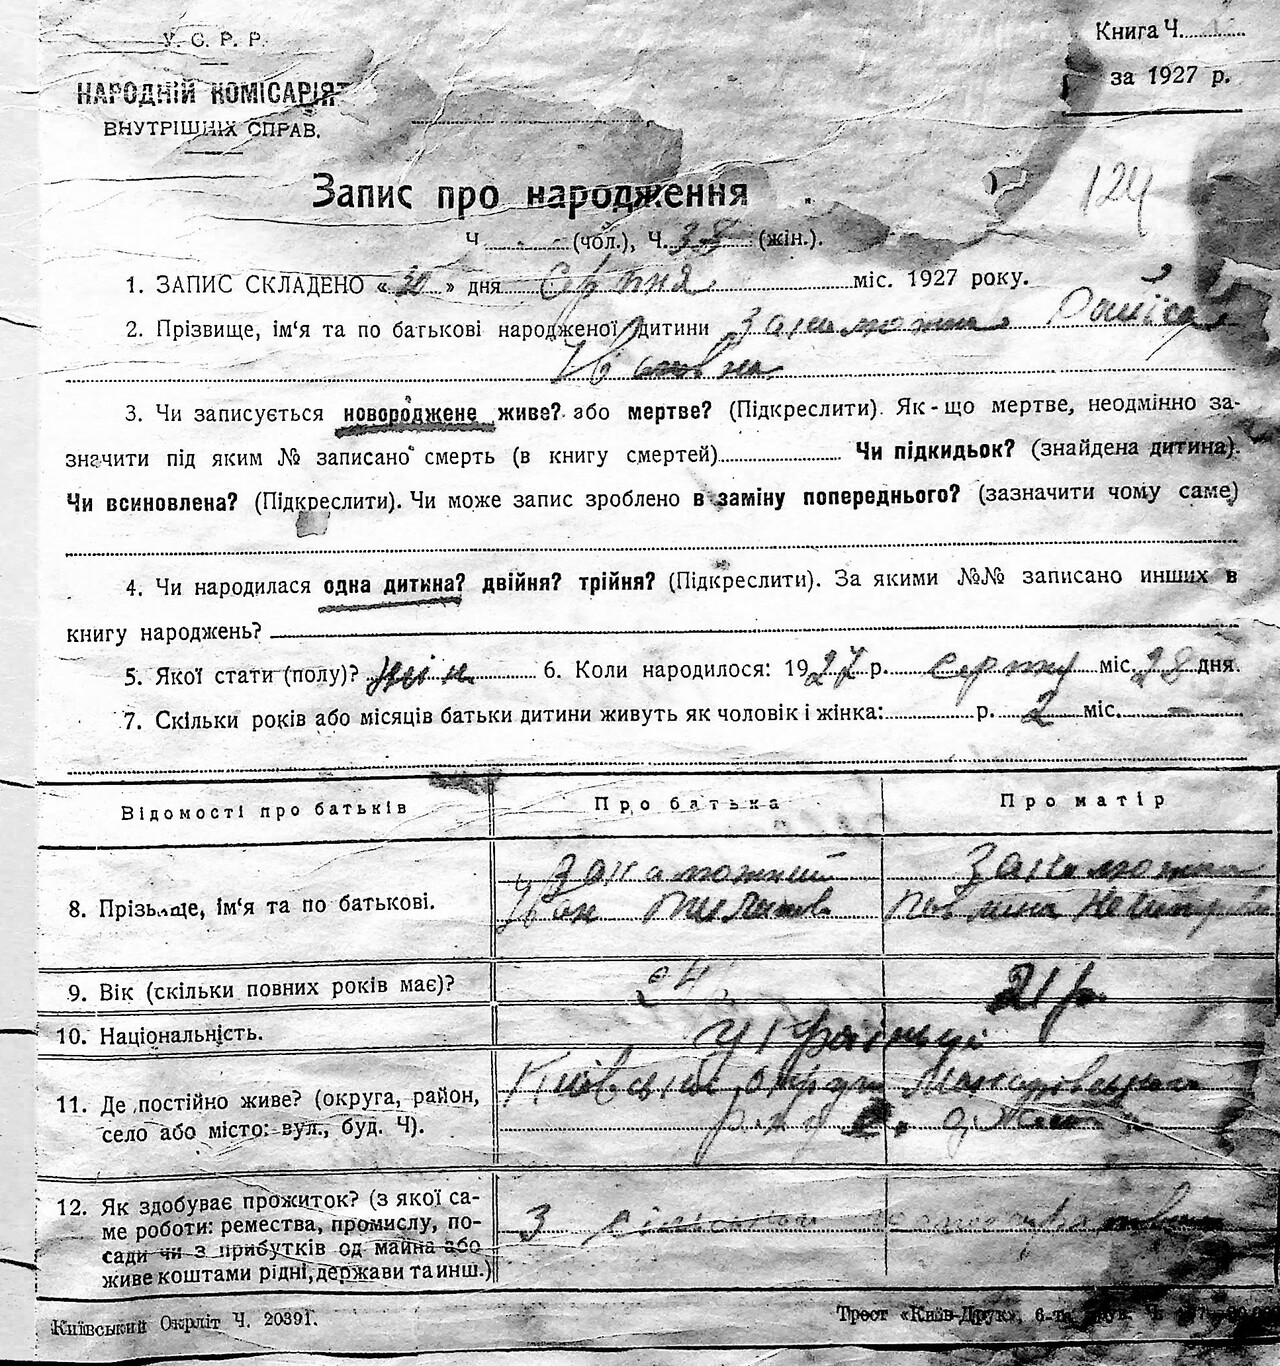 У. С. Р. Р.
НАРОДНІЙ КОМІСАРІЯТ
ВНУТРІШНІХ СПРАВ.
Книга Ч.
за 1927 р.
124
Запис про народження
Ч. - (чол.), Ч. 38 (жін.).
1. ЗАПИС СКЛАДЕНО «30» дня Серпня міс. 1927 року.
2. Прізвище, ім'я та по батькові народженої дитини Заможна Раїса
Івановна
3. Чи записується новороджене живе? або мертве? (Підкреслити). Як-що мертве, неодмінно за-
значити під яким № записано смерть (в книгу смертей) Чи підкидьок? (знайдена дитина).
Чи всиновлена? (Підкреслити). Чи може запис зроблено в заміну попереднього? (зазначити чому саме)
4. Чи народилася одна дитина? двійня? трійня? (Підкреслити). За якими №№ записано инших в
книгу народжень?
5. Якої стати (полу)? жін. 6. Коли народилося: 1927 р. серпня міс. 28 дня.
7. Скільки років або місяців батьки дитини живуть як чоловік і жінка: р. 2 міс. -
Відомості про батьків
Про батька
Про матір
8. Прізвище, ім'я та по батькові.
Іван
9. Вік (скільки повних років має)?
24
21 р.
10. Національність.
українці
11. Де постійно живе? (округа, район,
село або місто: вул., буд. Ч).
Київської округи Макарівського
р-ну с.
12. Як здобуває прожиток? (з якої са-
ме роботи: ремества, промислу, по-
сади чи з прибутків од майна або
живе коштами рідні, держави та инш.)
З сільського господарства
Київський Окрліт Ч. 20391.
Трест «Київ-Друк», 6-та друк.